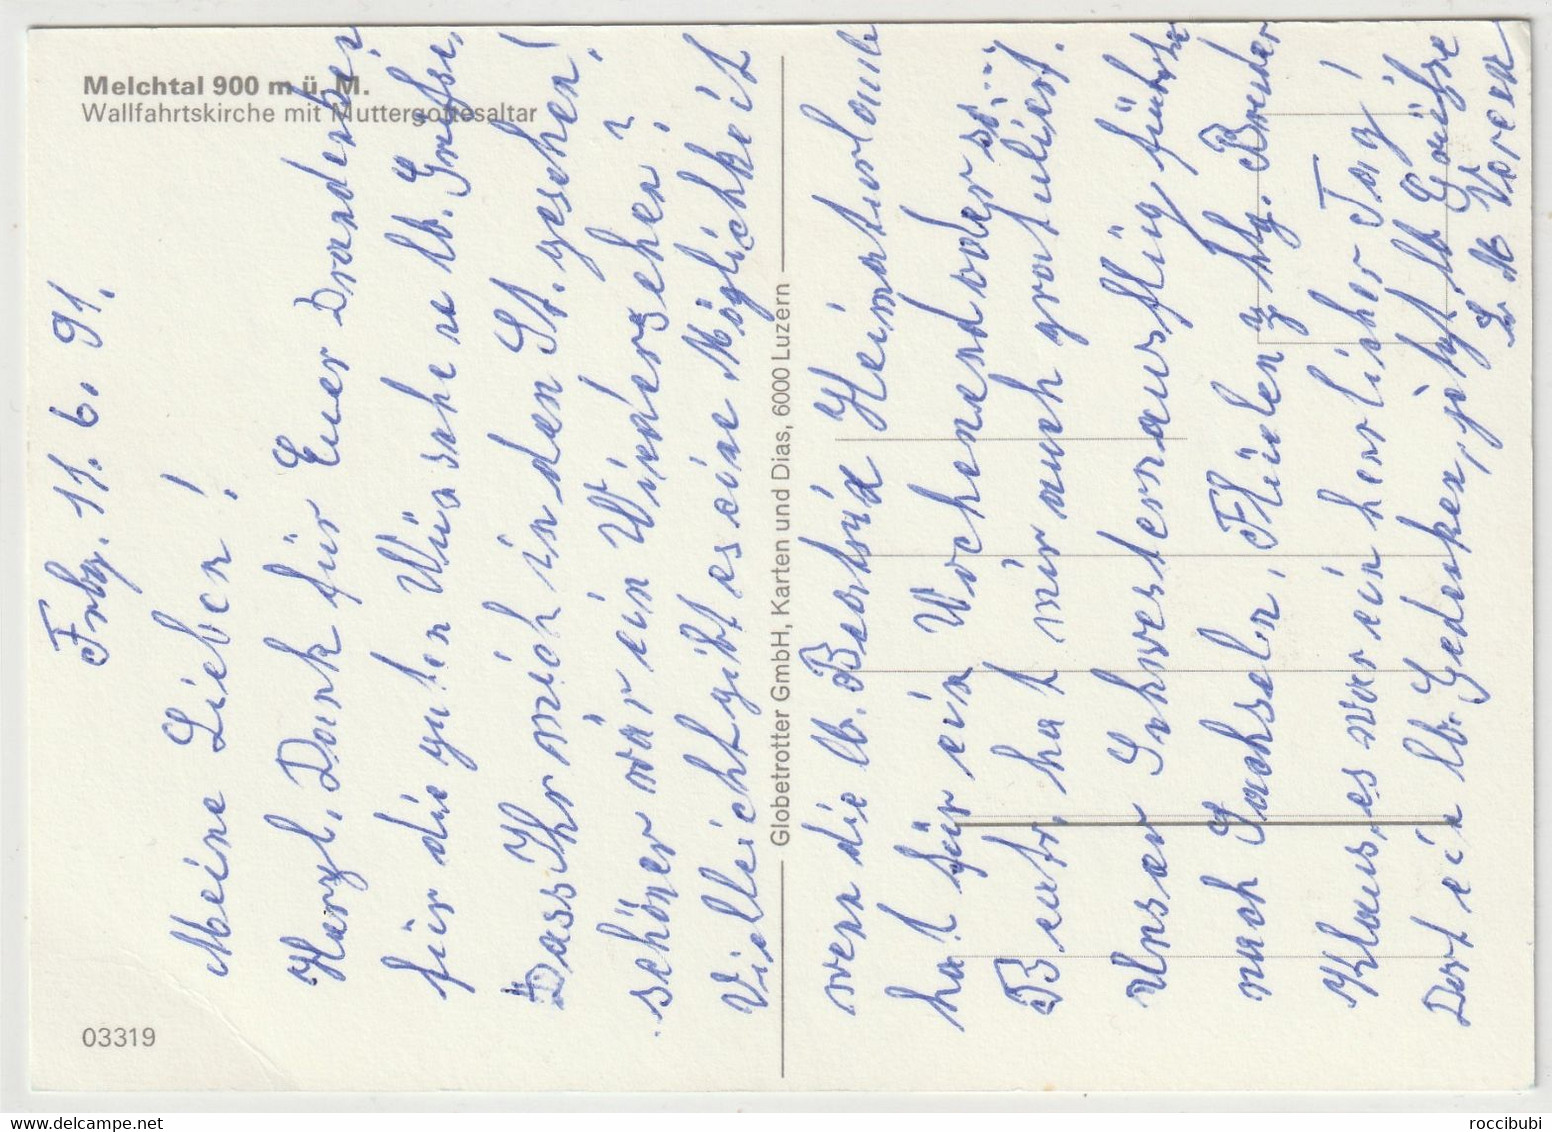 Melchtal 900 m ü. M.
Wallfahrtskirche mit Muttergottesaltar
Frbg. 11. 6. 91.
Meine Lieben!
Herzl. Dank für Euer Drandenken
für die guten Wünsche u lb. Grüsse,
Dass Ihr mich in den St. gesehen!
schöner wär ein Wiedersehen?
Vielleicht gibt es eine Möglichkeit
wenn die lb. Beatrix Heimaturlaub
hat für ein Wochenend oder so...
Beatr. hat mir auch gratuliert.
Unser Schwesternausflug führte
nach Sachseln, Flüeli z hlg. Bruder
Klaus, es war ein herrlicher Tag!
Dort ei lb. Gedenken, jetzt lb Grüsse
Sr. M Verena
Globetrotter GmbH, Karten und Dias, 6000 Luzern
03319
roccibubi